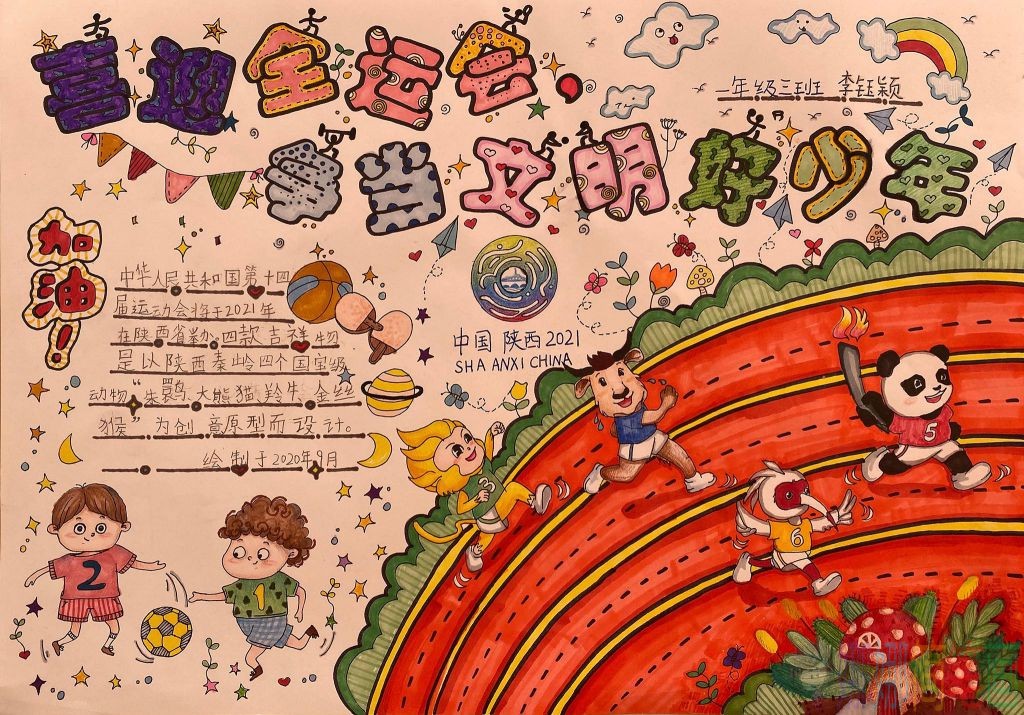 喜迎全运会，
一年级三班 李钰颖
争当文明好少年
加油！
中华人民共和国第十四
届运动会将于2021年
在陕西省举办,四款吉祥物
是以陕西秦岭四个国宝级
动物“朱鹮、大熊猫、羚牛、金丝
猴”为创意原型而设计。
绘制于2020年9月
中国 陕西2021
SHAANXI CHINA
3
5
6
2
1